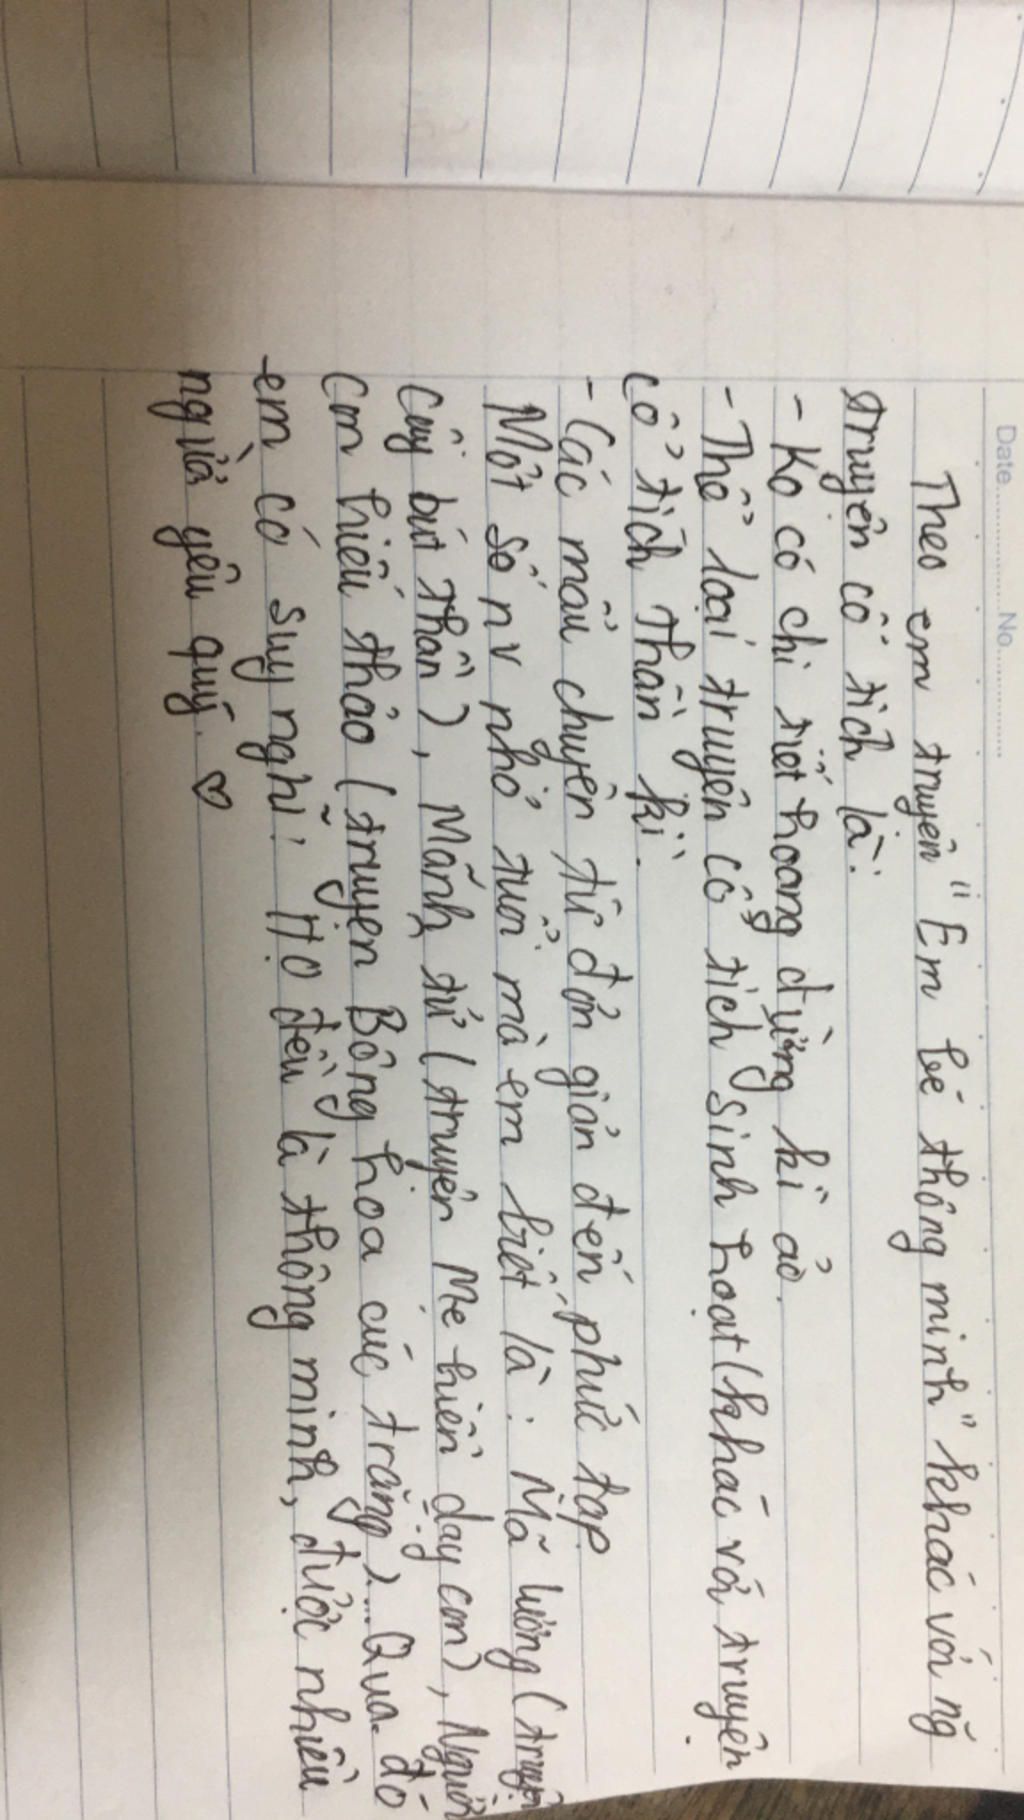 Date............No.............
Theo em truyện "Em bé thông minh" khác với ~ng
truyện cổ tích là:
- Ko có chi tiết hoang đường kì ảo.
- Thể loại truyện cổ tích sinh hoạt (khác với truyện
cổ tích thần kì.
- Các mẩu chuyện từ đơn giản đến phức tạp
Một số nv nhỏ tuổi mà em biết là: Mã lương (truyện
Cây bút thần), Mãnh tử (truyện Mẹ hiền dạy con), Người
con hiếu thảo (truyện Bông hoa cúc trắng)... Qua đó
em có suy nghĩ: Họ đều là thông minh, được nhiều
người yêu quý. ♡